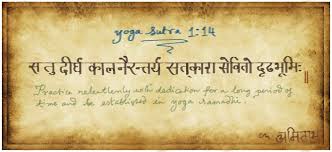 yoga sutra 1:14
स तु दीर्घ कालनैरन्तर्य सत्कारा सेवितो दृढभूमिः ॥
Practice relentlessly with dedication for a long period of
time and be established in yoga samadhi.